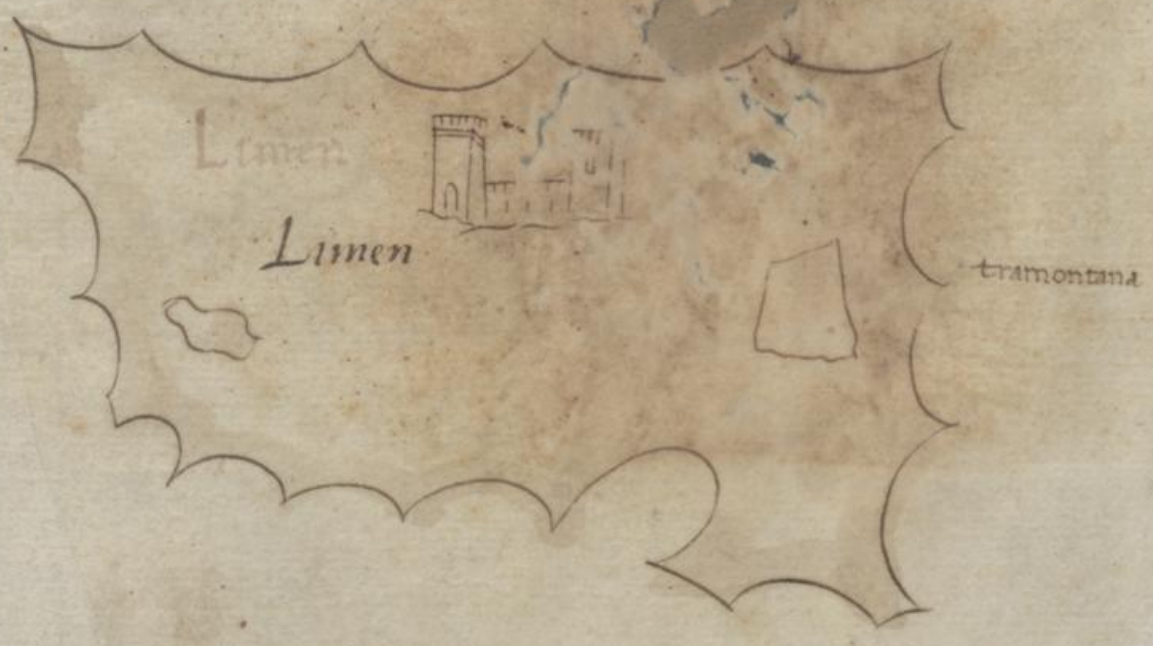 Limen
Limen
tramontana